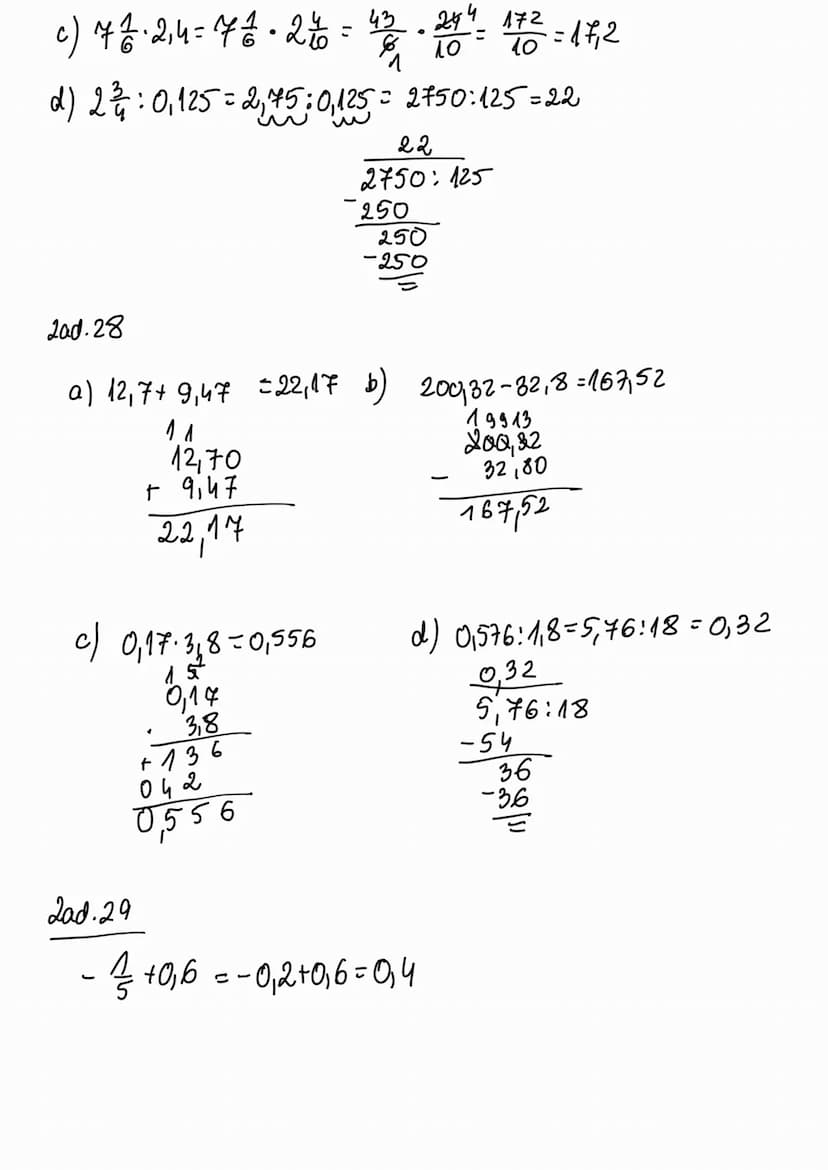 c) 7 1/6 · 2,4 = 7 1/6 · 2 4/10 = 43/6 · 24/10 = 172/10 = 17,2
4
1
d) 2 3/4 : 0,125 = 2,75 : 0,125 = 2750 : 125 = 22
22
2750 : 125
-250
250
-250
=
Zad. 28
a) 12,7 + 9,47 = 22,17 b) 200,32 - 32,8 = 167,52
11
12,70
+ 9,47
22,17
19913
200,32
- 32,80
167,52
c) 0,17 · 3,8 = 0,556 d) 0,576 : 1,8 = 5,76 : 18 = 0,32
0,17
· 3,8
+ 136
042
0,556
0,32
5,76 : 18
-54
36
-36
=
Zad. 29
- 1/5 + 0,6 = -0,2 + 0,6 = 0,4